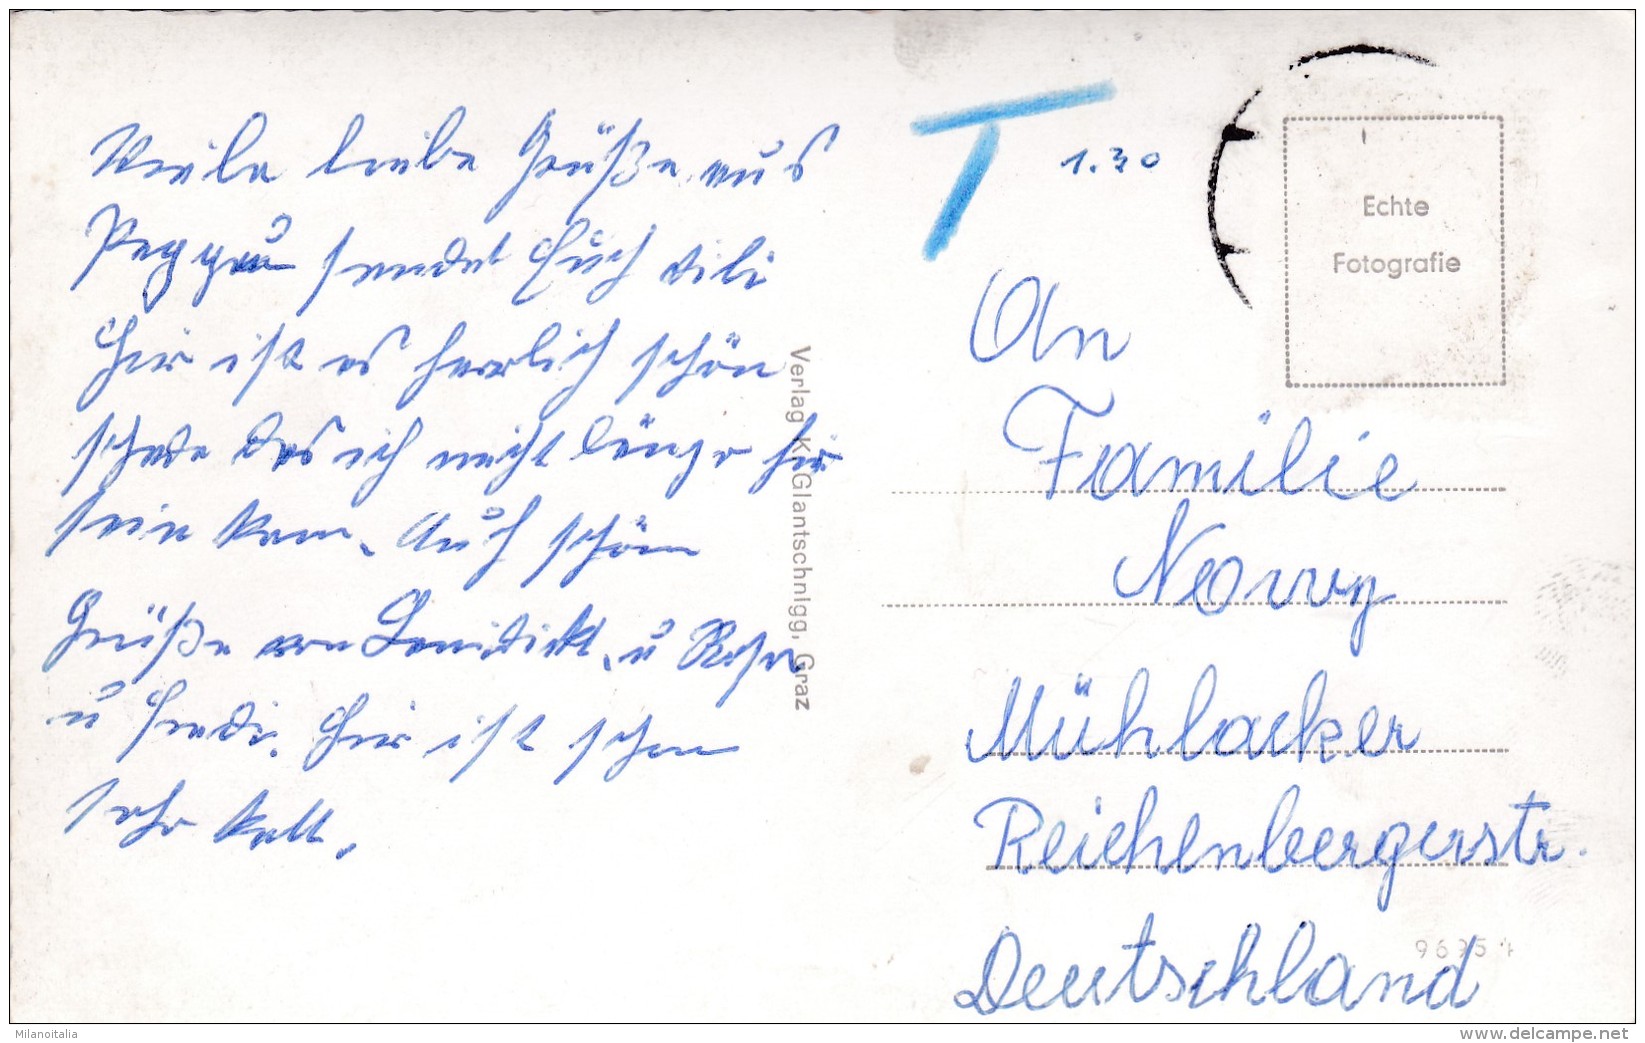 Viele liebe Grüße aus
Peggau sendet Euch Vili
Hir ist es herrlich schön
schade das ich nicht länger hir
sein kann. Auch schöne
Grüße von Benidickt. u Rosa
u Heidi. Hir ist schon
sehr kalt.
Verlag K. Glantschnigg, Graz
T
1.30
Echte
Fotografie
An
Familie
Nowy
Mühlacker
Reichenbergerstr.
Deutschland
Milanoitalia
delcampe.net